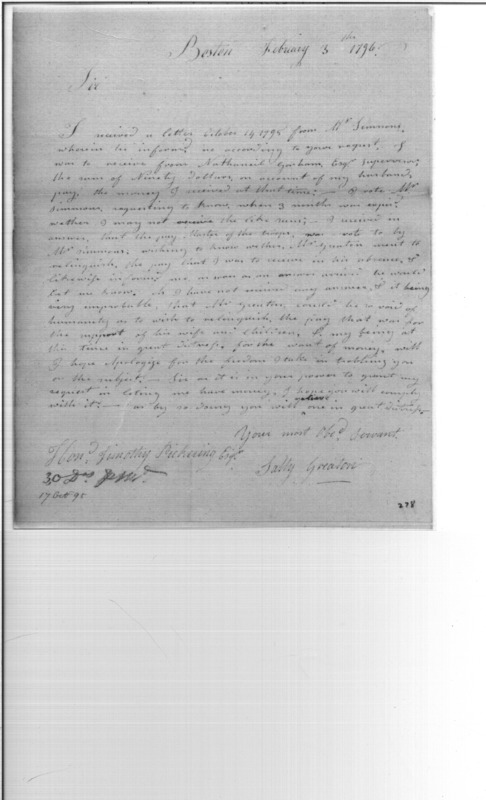 Boston February 3th 1796.
Sir
I received a letter October 14 1795 from Mr Simmons,
wherein he inform'd me according to your request, I
was to receive from Nathaniel Gorham, Esqr Supervisor,
the sum of Ninety Dollars, on account of my husbands
pay; the money I received at that time; — I rote Mr
Simmons, requesting to know, when 3 months was expired
wether I may not receive the like sum; — I received in
answer, that the pay Master of the troops, was rote to by
Mr Simmons, wishing to know wether Mr Greaton ment to
relinquish, the pay that I was to receive in his absence, &
likewise inform'd me as soon as an answer arrived he would
let me know. As I have not received any answer, & it being
very improbable, that Mr Greaton, could be so void of
humanity as to wish to relinquish, the pay that was for
the support of his wife and Children, & my being at
this time in great distress, for the want of money, will
I hope Apologize for the freedom I take in trobling you
on the subject; — Sir as it is in your power to grant my
request in leting me have money, I hope you will comply
with it; — as by so doing you will relieve one in great distress
Your most Obed Servant.
Hond Timothy Pickering Esqr
Sally Greaton
30
17 Oct 95
278